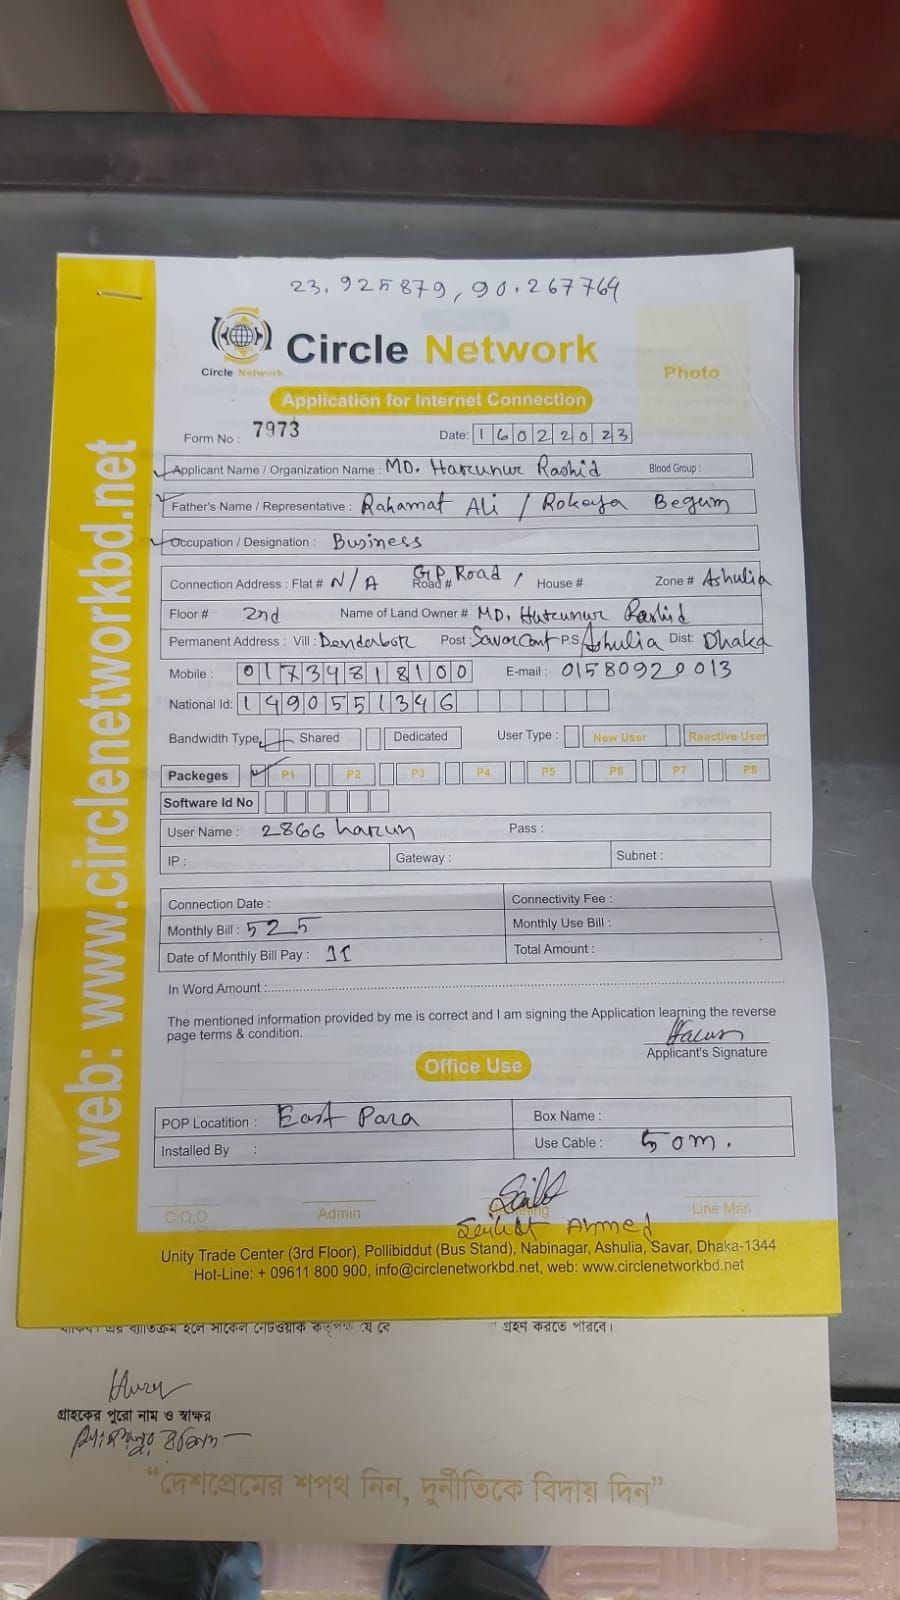 23.925879, 90.267764
Circle Network
Circle Network
Photo
Application for Internet Connection
Form No : 7973
Date: 16022023
Applicant Name / Organization Name : MD. Harunur Rashid Blood Group :
Father's Name / Representative : Rahamat Ali / Rokeya Begum
Occupation / Designation : Business
Connection Address : Flat # N/A Road # GP Road, House # Zone # Ashulia
Floor # 2nd Name of Land Owner # MD. Harunur Rashid
Permanent Address : Vill : Dendabor Post : Savar Cant P.S Ashulia Dist: Dhaka
Mobile : 01734818100 E-mail : 01580920013
National Id: 1490551346
Bandwidth Type Shared Dedicated User Type : New User Reactive User
Packeges P1 P2 P3 P4 P5 P6 P7 P8
Software Id No
User Name : 2866 harun Pass :
IP : Gateway : Subnet :
Connection Date : Connectivity Fee :
Monthly Bill : 525 Monthly Use Bill :
Date of Monthly Bill Pay : Total Amount :
In Word Amount :
The mentioned information provided by me is correct and I am signing the Application learning the reverse
page terms & condition.
Harun
Applicant's Signature
Office Use
POP Locatition : East Para Box Name :
Installed By : Use Cable : 50m.
C.O.O Admin Line Man
Ahmed
Unity Trade Center (3rd Floor), Pollibiddut (Bus Stand), Nabinagar, Ashulia, Savar, Dhaka-1344
Hot-Line: + 09611 800 900, info@circlenetworkbd.net, web: www.circlenetworkbd.net
web: www.circlenetworkbd.net
এর ব্যতিক্রম হলে সার্কেল নেটওয়ার্ক কর্তৃপক্ষ যে গ্রহণ করতে পারবে।
গ্রাহকের পুরো নাম ও স্বাক্ষর
“দেশপ্রেমের শপথ নিন, দুর্নীতিকে বিদায় দিন”